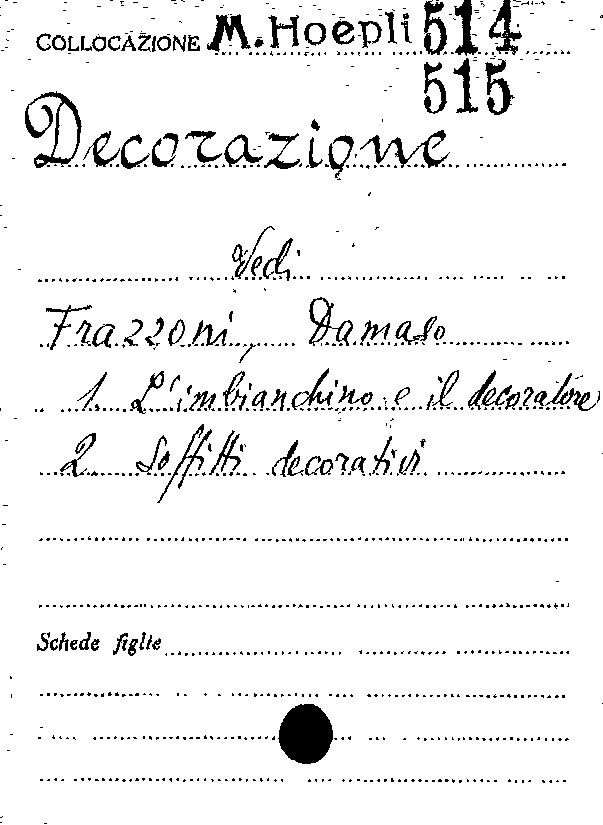 COLLOCAZIONE M. Hoepli 514
515
Decorazione
Vedi
Frazzoni, Damaso
1. L'imbianchino e il decoratore
2. Soffitti decorativi
Schede figlie